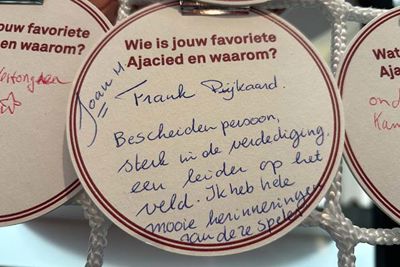 Wie is jouw favoriete
Ajacied en waarom?
Joan M
= Frank Rijkaard.
Bescheiden persoon,
sterk in de verdediging.
een leider op het
veld. Ik heb hele
mooie herinneringen
aan deze speler
jouw favoriete
ed en waarom?
Vertonghen
Wat
Ajac
ond
Kam